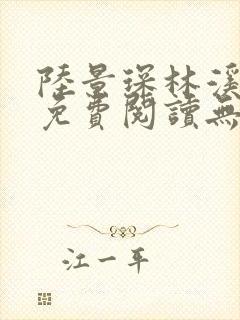 陸景琛林溪
免費閱讀無
江一平